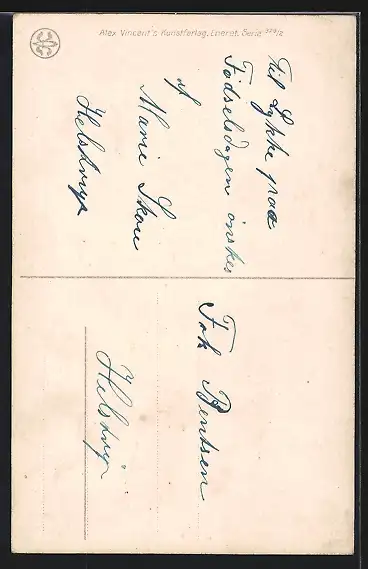 Alex Vincent's Kunstforlag, Eneret. Serie 328/2
Til Lykke paa
Fødselsdagen ønskes
af
Marie Skou
Helstrup
Frk Bentsen
Helstrup